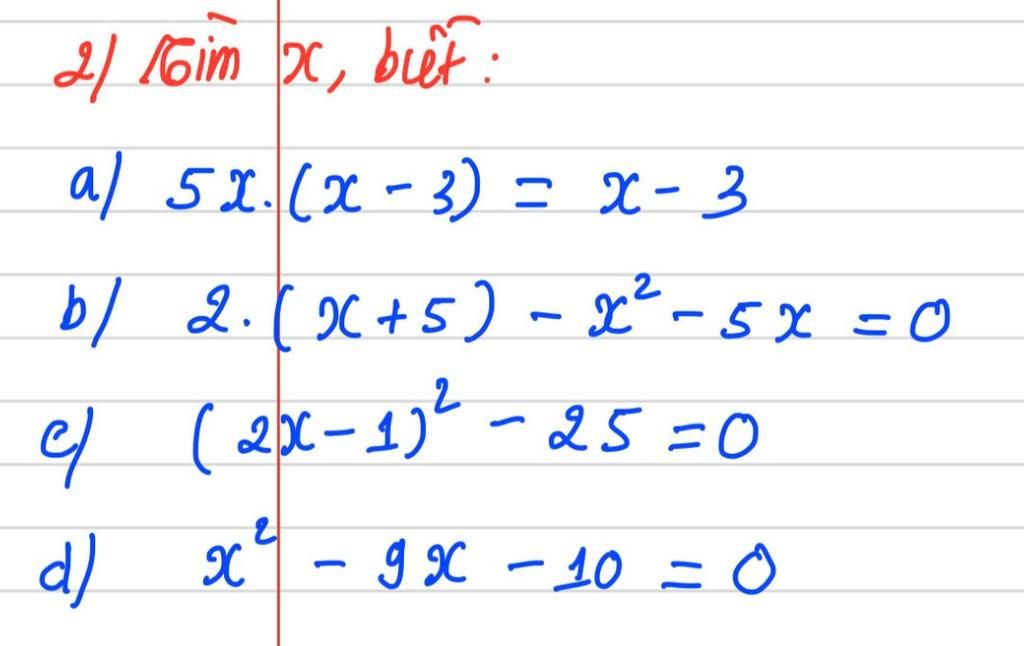 2/ Tìm x, biết:
a/ 5x.(x - 3) = x - 3
b/ 2.(x + 5) - x² - 5x = 0
c/ (2x - 1)² - 25 = 0
d/ x² - 9x - 10 = 0